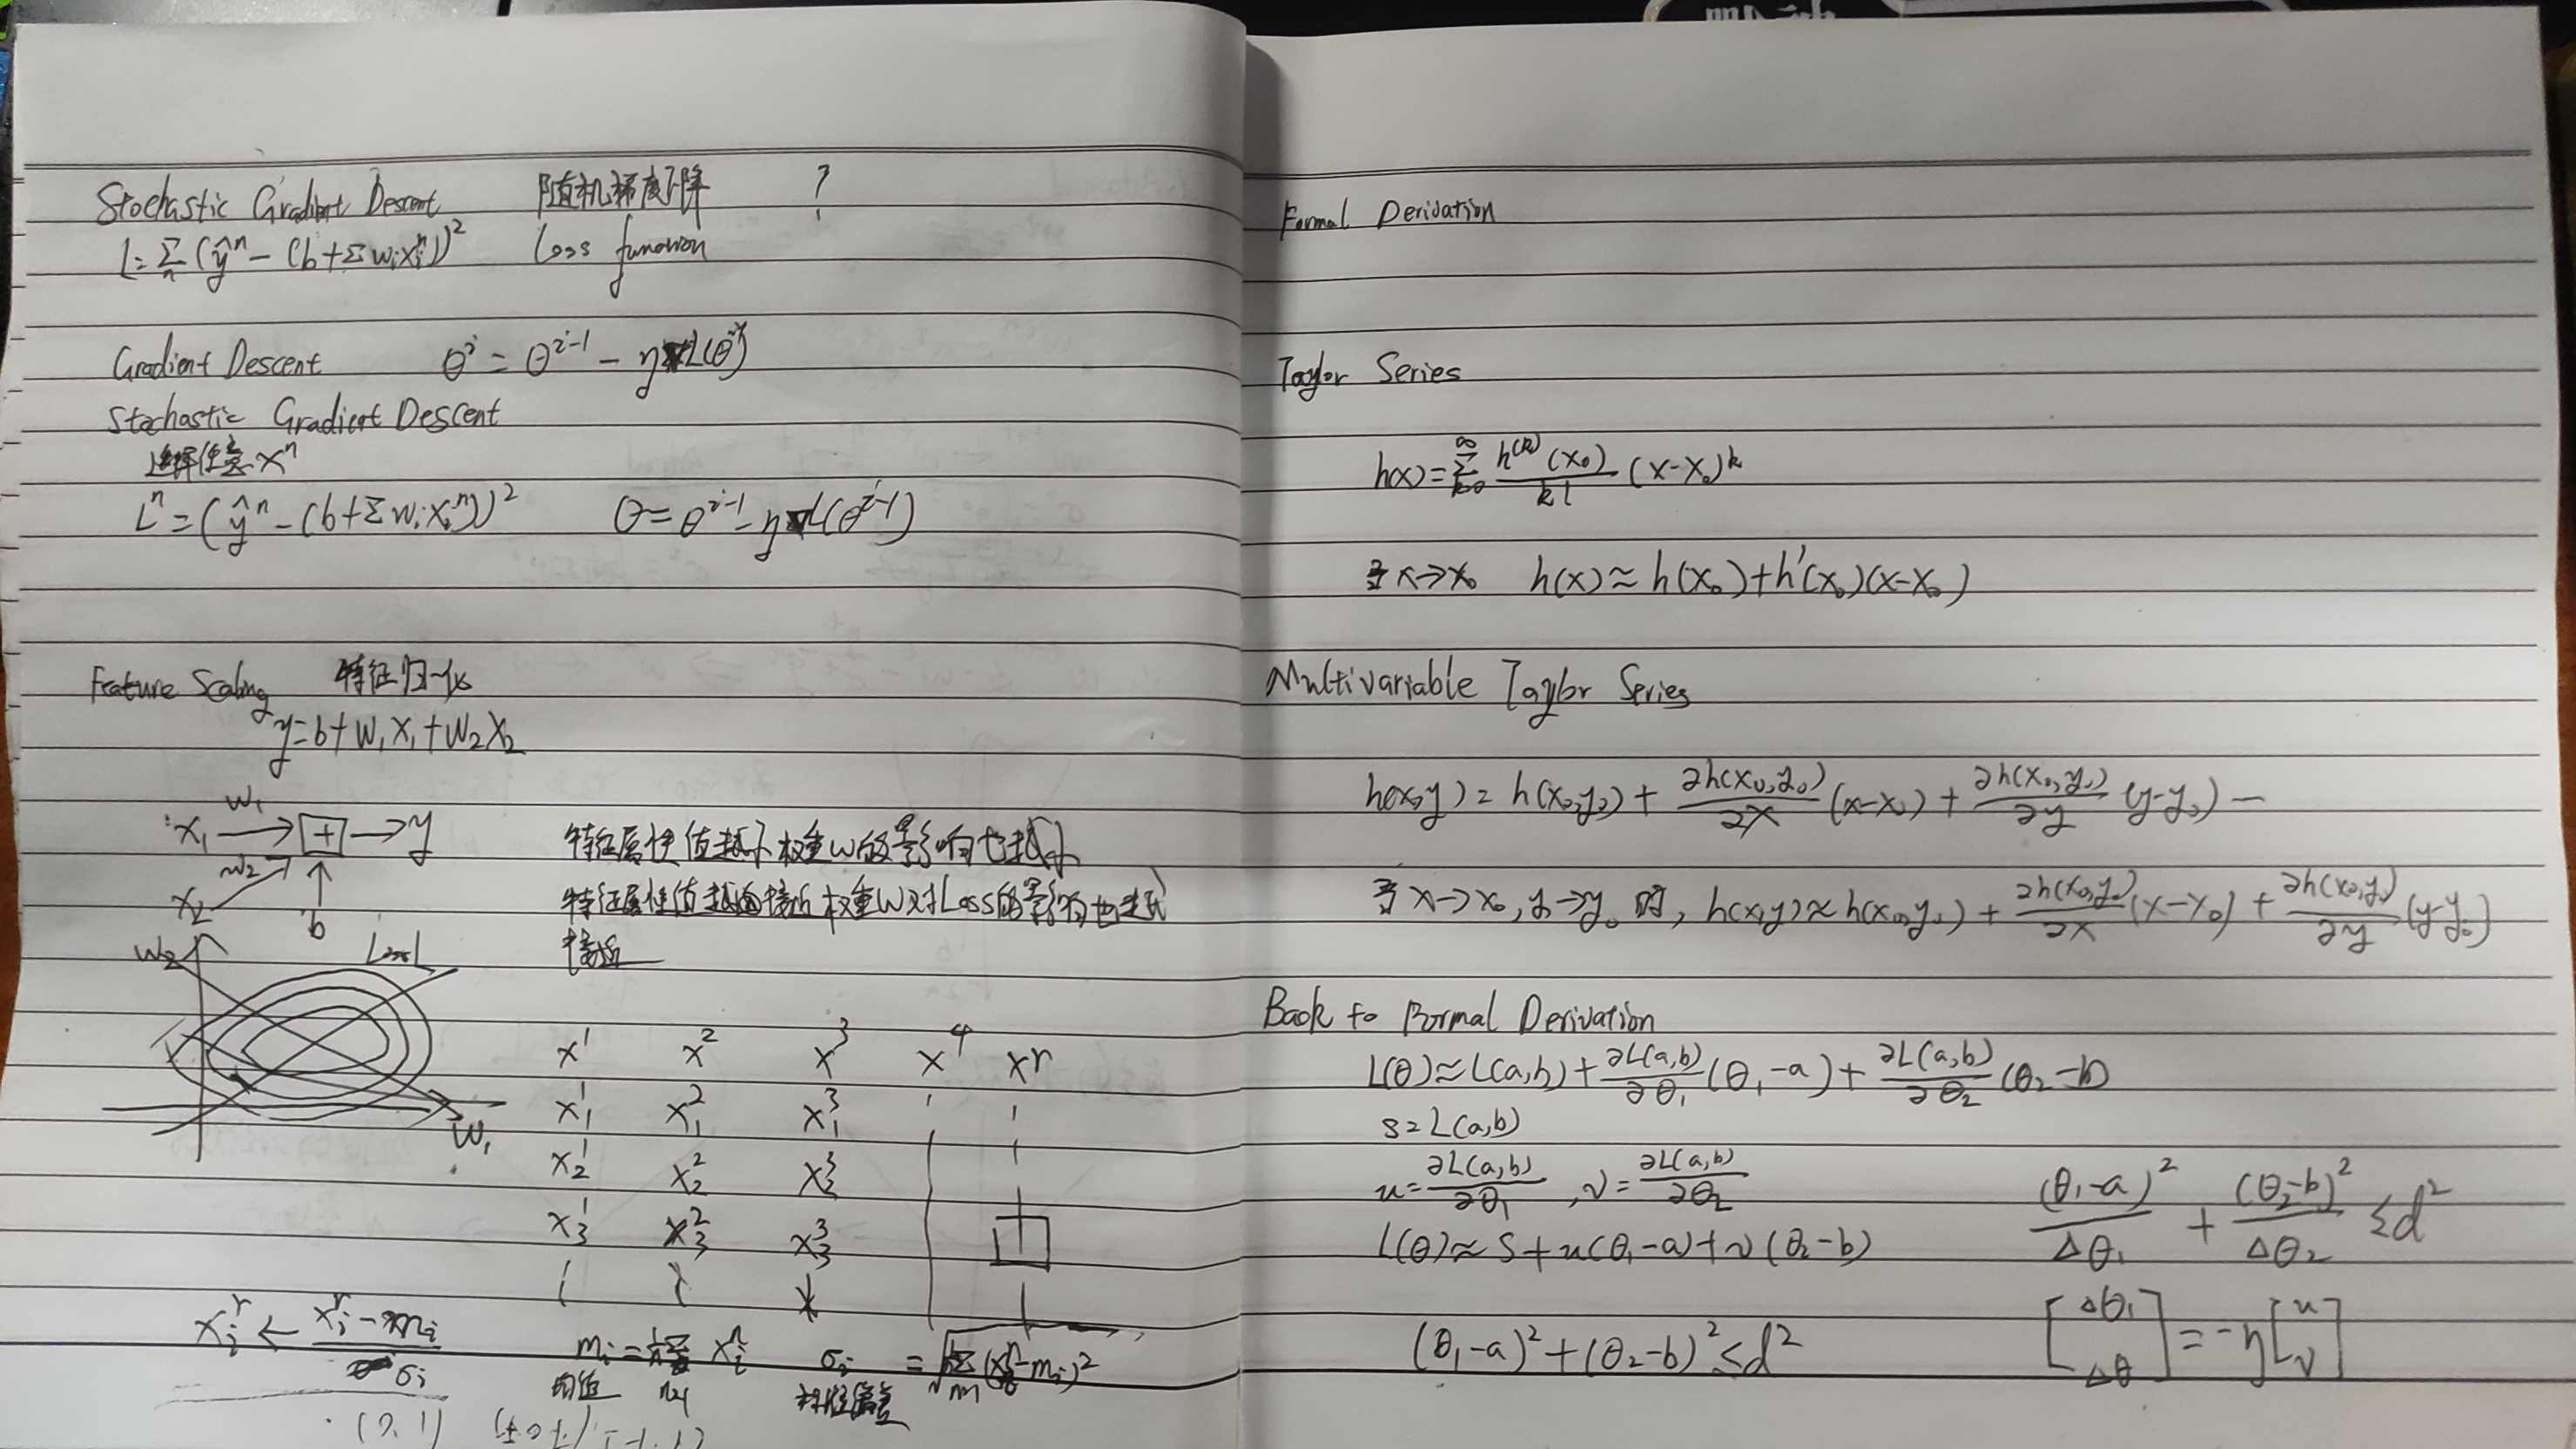 Stochastic Gradient Descent 随机梯度下降 ?
L=Σn(ŷⁿ-(b+Σwᵢxᵢⁿ))² Loss function
Gradient Descent θⁱ=θⁱ⁻¹-η∇L(θⁱ⁻¹)
Stochastic Gradient Descent
选择任意xⁿ
Lⁿ=(ŷⁿ-(b+Σwᵢxᵢⁿ))² θ=θⁱ⁻¹-η∇L(θⁱ⁻¹)
Feature Scaling 特征归一化
y=b+w₁x₁+w₂x₂
w₁
x₁ → + → y
w₂
x₂
b
特征属性值越小权重w的影响也越小
特征属性值越接近权重w对Loss的影响也越
接近
w₂ Loss L
w₁
x¹ x² x³ x⁴ xʳ
x₁¹ x₁² x₁³
x₂¹ x₂² x₂³
x₃¹ x₃² x₃³
xᵢʳ ← (xᵢʳ-mᵢ)/σᵢ mᵢ=1/n Σ xᵢⁿ σᵢ =√(1/n Σ(xᵢⁿ-mᵢ)²)
均值 n=1 标准偏差
Formal Derivation
Taylor Series
h(x)=Σ_{k=0}^{∞} h⁽ᵏ⁾(x₀)/k! (x-x₀)ᵏ
当x→x₀ h(x)≈h(x₀)+h'(x₀)(x-x₀)
Multivariable Taylor Series
h(x,y)=h(x₀,y₀)+∂h(x₀,y₀)/∂x (x-x₀)+∂h(x₀,y₀)/∂y (y-y₀)—
当x→x₀,y→y₀时,h(x,y)≈h(x₀,y₀)+∂h(x₀,y₀)/∂x (x-x₀)+∂h(x₀,y₀)/∂y (y-y₀)
Back to Formal Derivation
L(θ)≈L(a,b)+∂L(a,b)/∂θ₁ (θ₁-a)+∂L(a,b)/∂θ₂ (θ₂-b)
s=L(a,b)
u=∂L(a,b)/∂θ₁ , v=∂L(a,b)/∂θ₂
L(θ)≈s+u(θ₁-a)+v(θ₂-b)
(θ₁-a)²/Δθ₁ + (θ₂-b)²/Δθ₂ ≤d²
(θ₁-a)²+(θ₂-b)²≤d²
[Δθ₁ Δθ]=-η[u v]